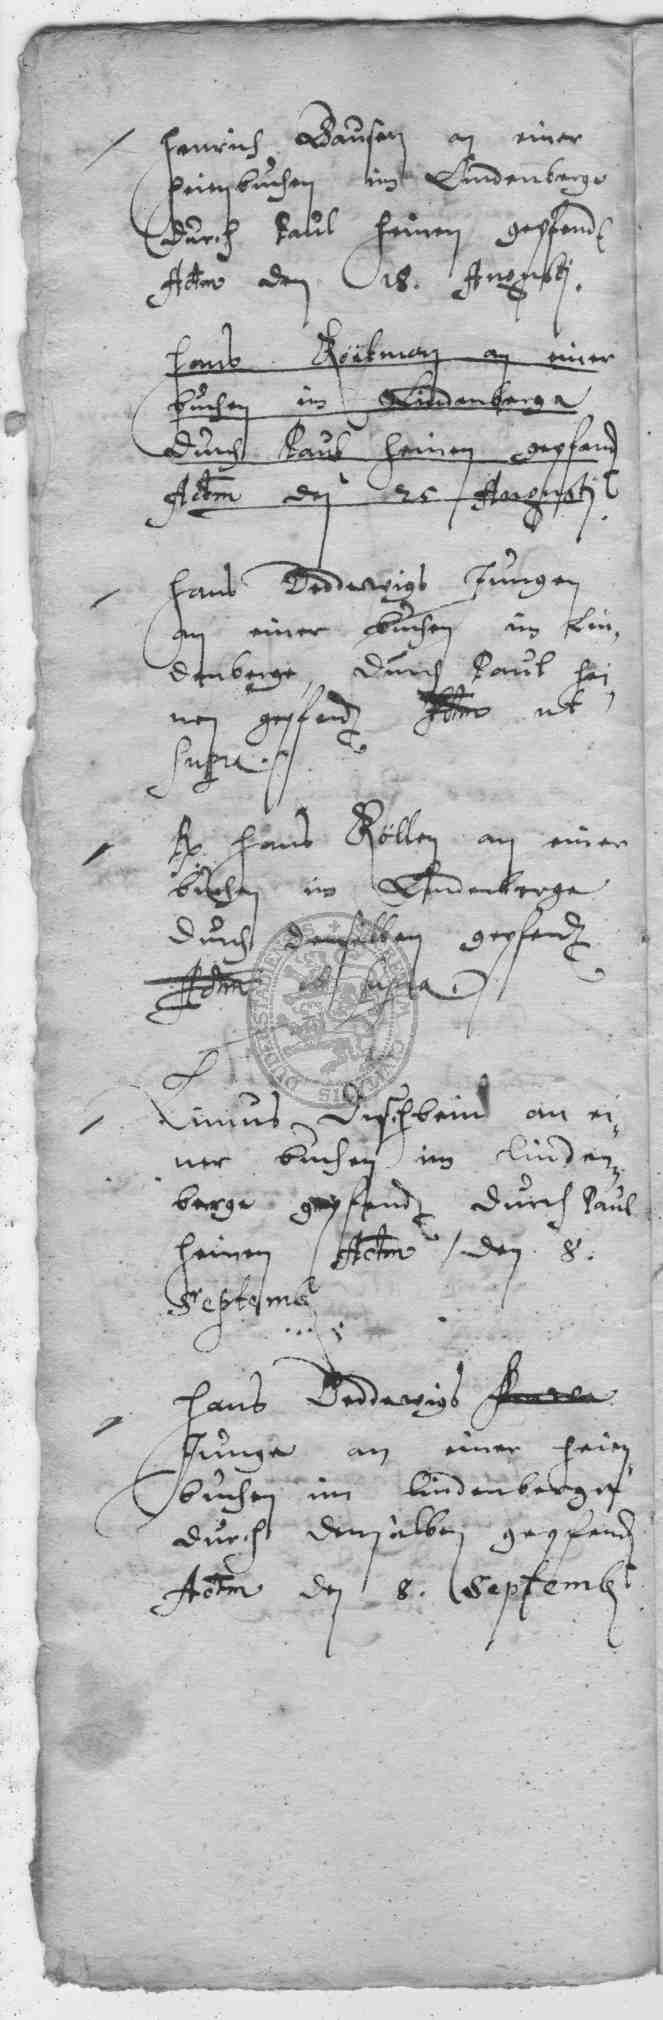 Henrich Bausen an einer
heienbuchen im Lindenberge
durch Paul Heinen gepfendt
Actum den 18. Augusti.
Hans Röckman an einer
buchen im Lindenberge
durch Paul Heinen gepfand
Actum den 25 Augusti
Hans Deddewigs Jungen
an einer buchen im Lin,
denberge, durch Paul Hei
nen gepfendt Actum ut
supra.
Hans Röllen an einer
buchen im Lindenberge
durch denselben gepfendt
Actum ut supra.
Linnus Dischbein an ei,
ner buchen im linden,
berge gepfendt durch Paul
Heinen Actum den 8.
Septemb
Hans Deddewigs
Junge an einer heien
buchen im lindenberge
durch denselben gepfend
Actum den 8. Septemb